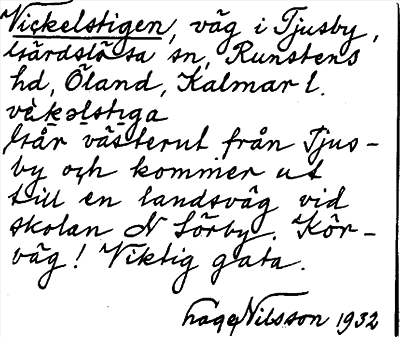 Vickelstigen, väg i Tjusby,
Gärdslösa sn, Runstens
hd, Öland, Kalmar l.
vèkəlstiga
Går västerut från Tjus-
by och kommer ut
till en landsväg vid
skolan N Sörby. Kör-
väg! Viktig gata.
Nilsson 1932